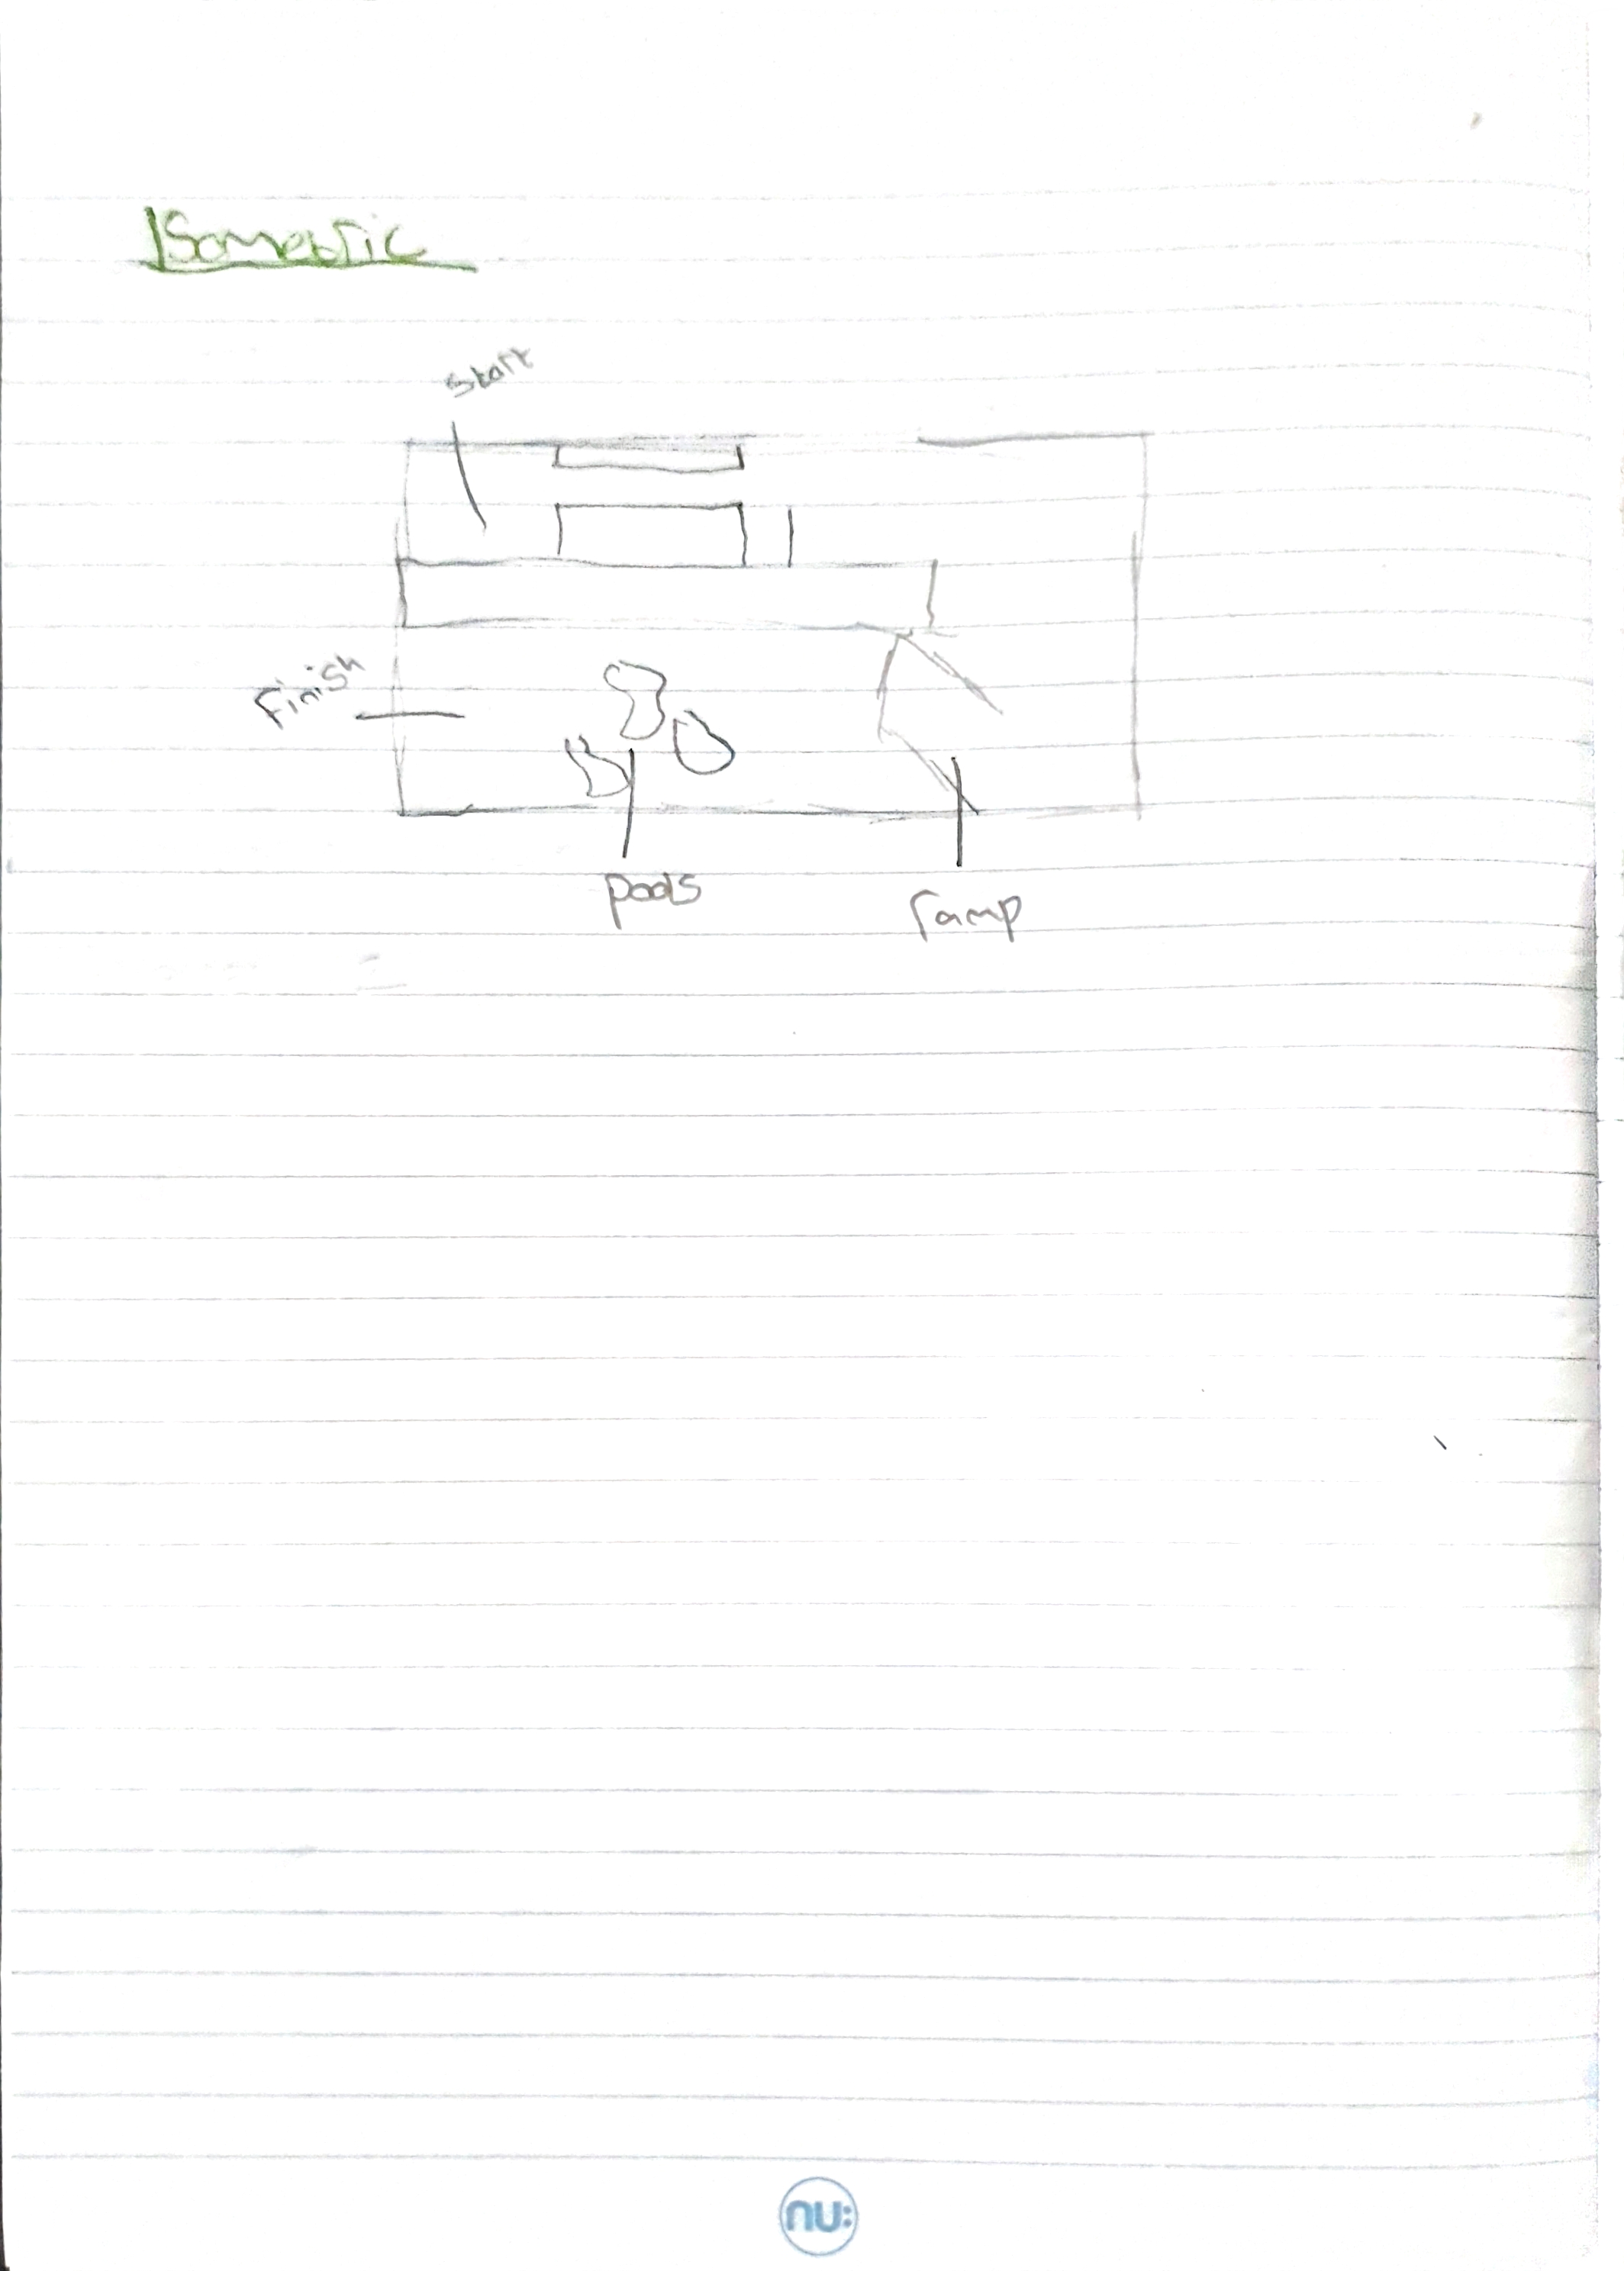 Isometric
Start
Finish
pools
ramp
nu: